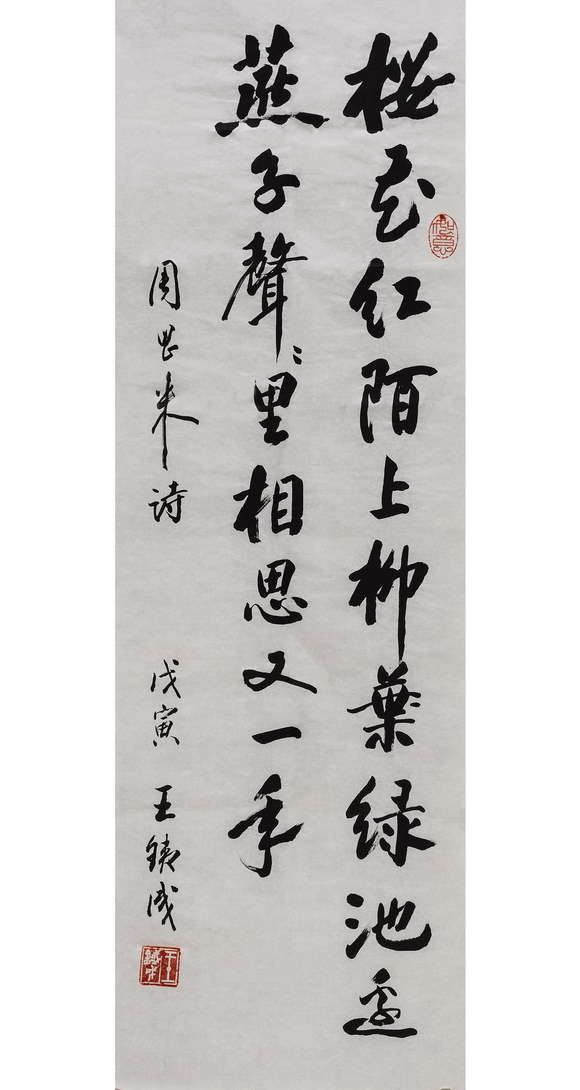 樱花红陌上柳葉绿池邊
燕子聲〻里相思又一年
周恩来诗
戊寅 王铁成